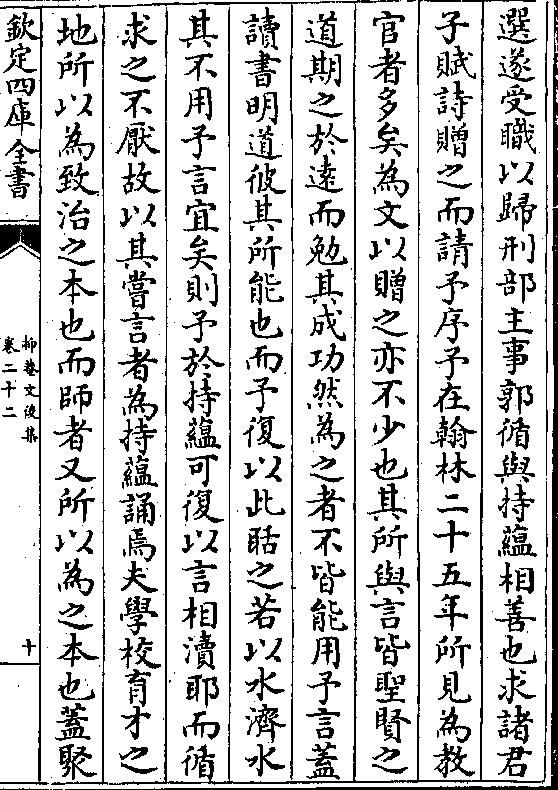 選遂受職以歸刑部主事郭循與持蘊相善也求諸君
子賦詩贈之而請予序予在翰林二十五年所見為教
官者多矣為文以贈之亦不少也其所與言皆聖賢之
道期之於遠而勉其成功然為之者不皆能用予言蓋
讀書明道彼其所能也而予復以此聒之若以水濟水
其不用予言宜矣則予於持蘊可復以言相瀆耶而循
求之不厭故以其嘗言者為持蘊誦焉夫學校育才之
地所以為致治之本也而師者又所以為之本也蓋聚
欽定四庫全書
抑菴文後集
卷二十二
十